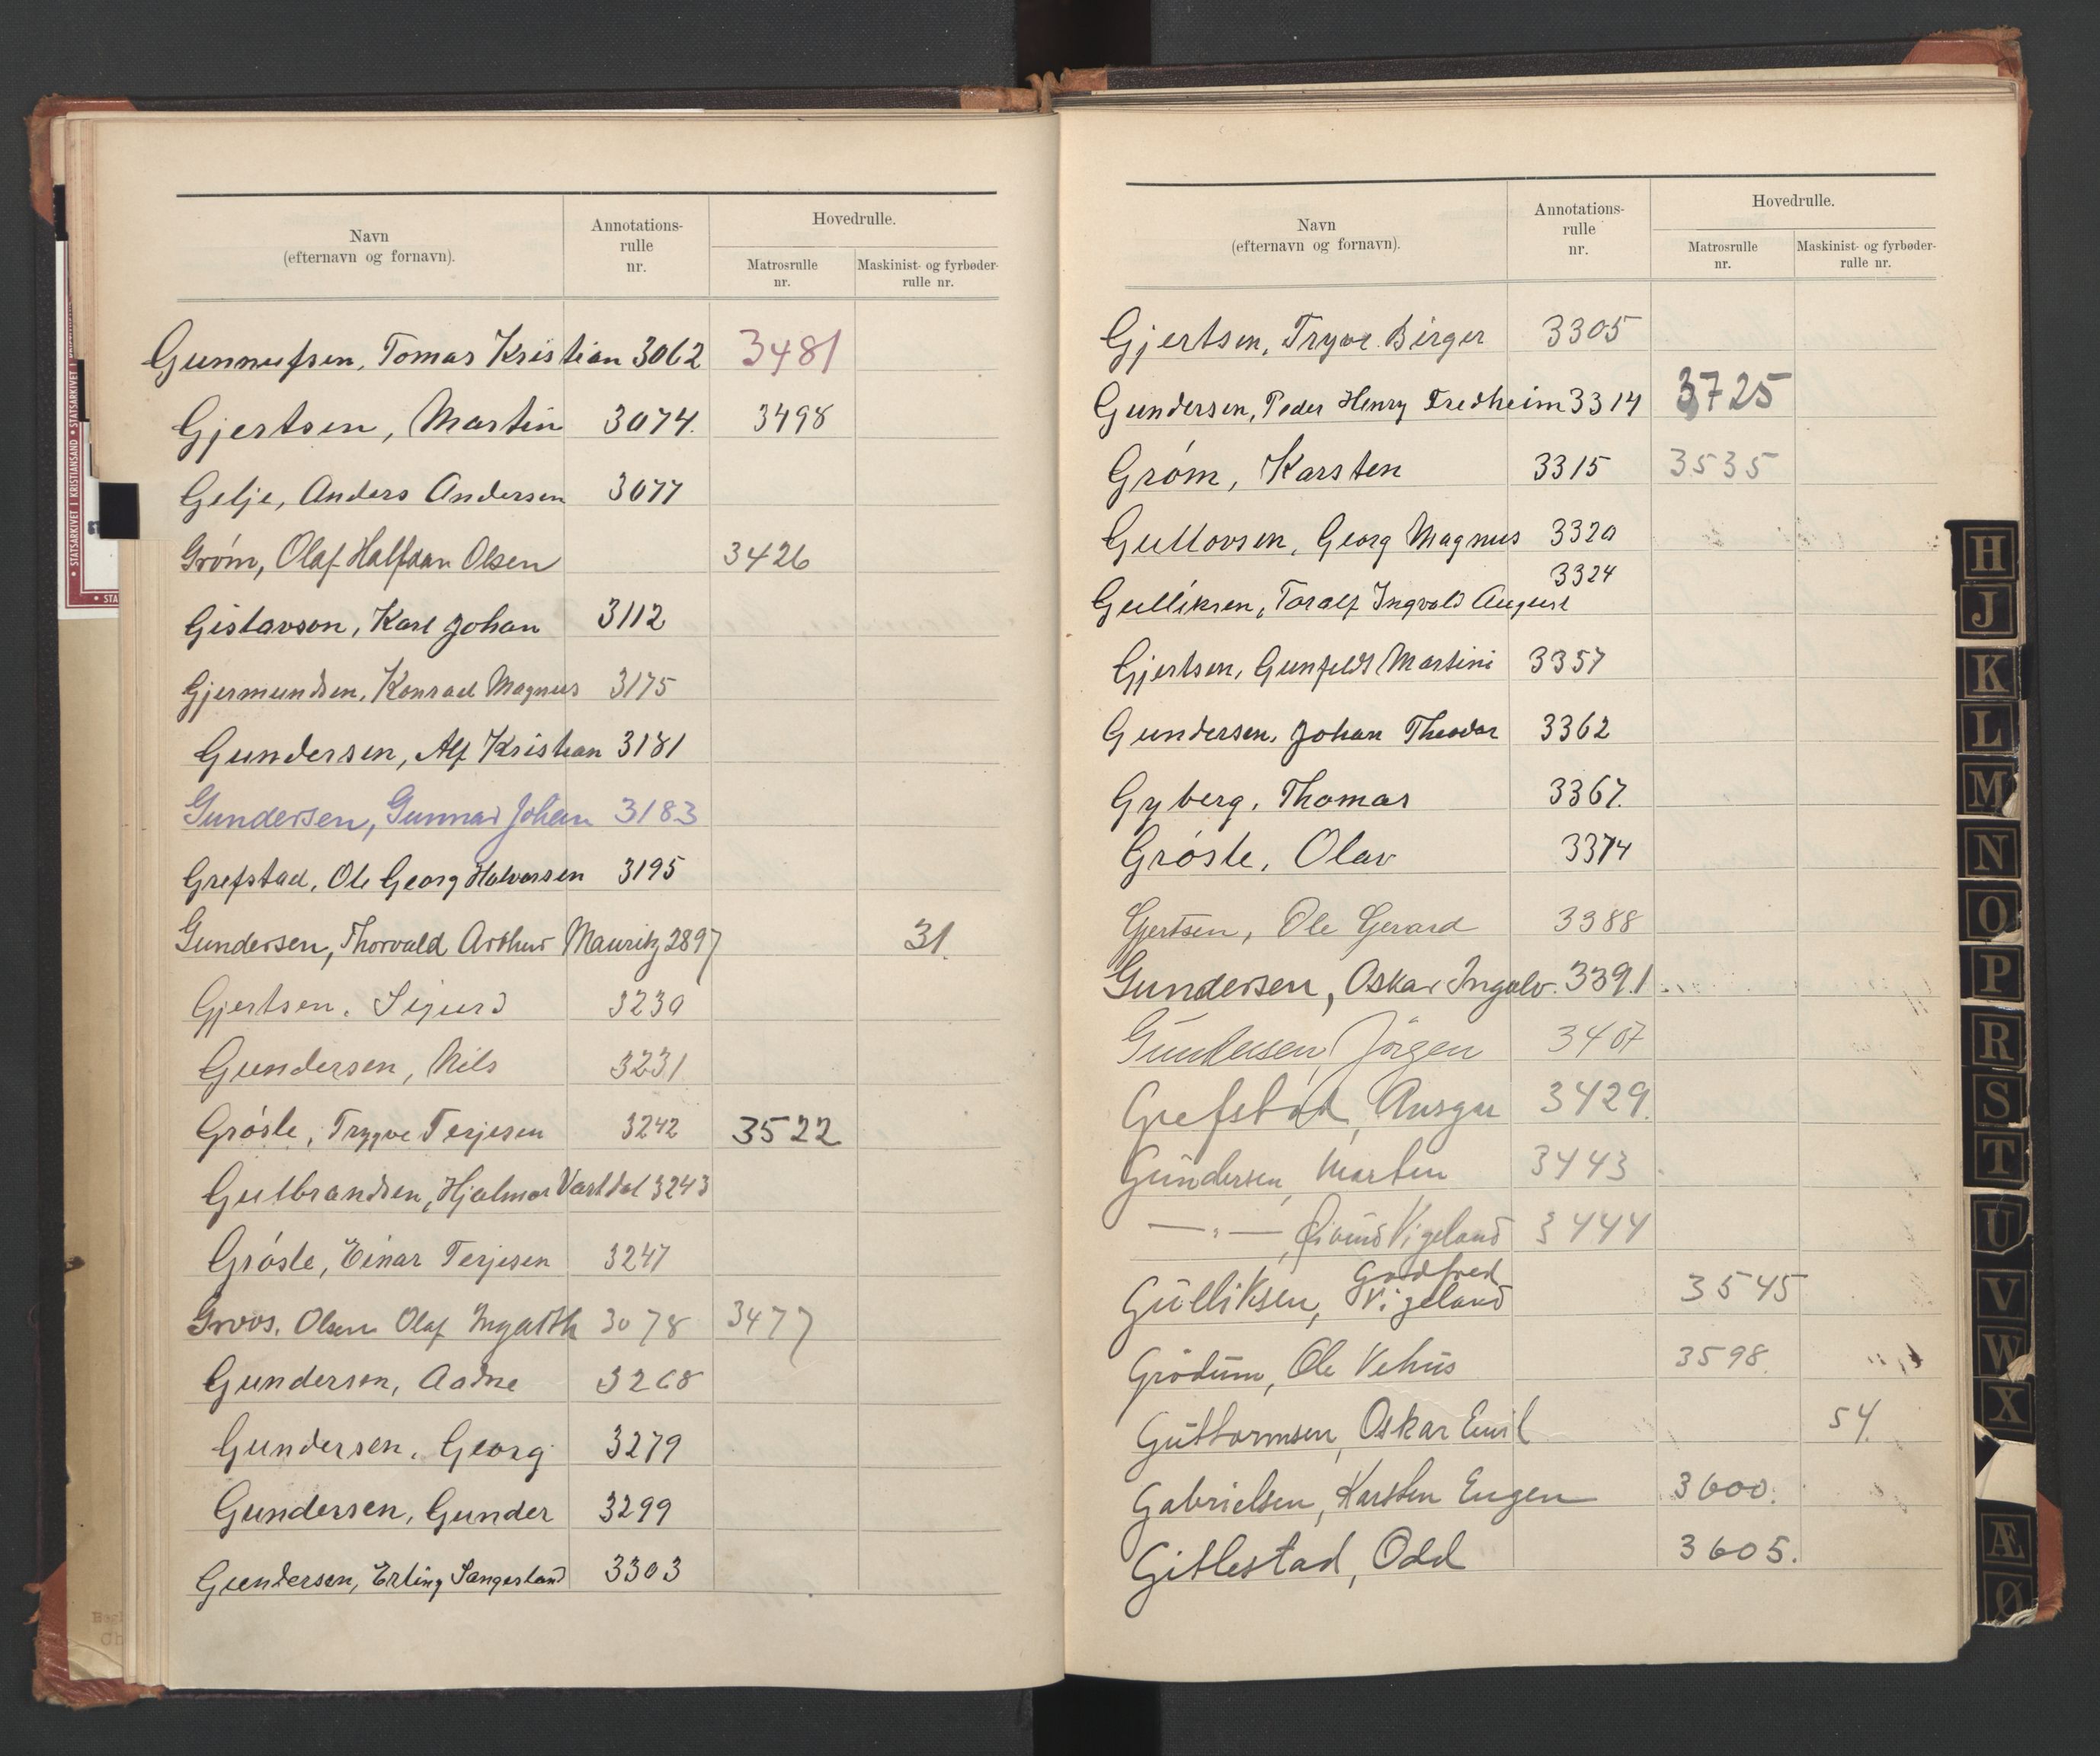 Navn
(efternavn og fornavn).
Annotations-
rulle
nr.
Hovedrulle.
Matrosrulle
nr.
Maskinist- og fyrbøder-
rulle nr.
Gunnufsen, Tomas Kristian 3062 3481
Gjertsen, Martin 3074. 3498
Gelje, Anders Andersen 3077
Grøm, Olaf Halfdan Olsen 3426
Gistavson, Karl Johan 3112
Gjermundsen, Konrad Magnus 3175
Gundersen, Alf Kristian 3181
Gundersen, Gunnar Johan 3183
Grefstad, Ole Georg Halvorsen 3195
Gundersen, Thorvald Arthur Mauritz 2897 31.
Gjertsen, Sigurd 3230
Gundersen, Nils 3231
Grösle, Trygve Terjesen 3242 3522
Gulbrandsen, Hjalmar Vartdal 3243
Grösle, Einar Terjesen 3247
Groos, Olsen Olaf 3078 3477
Gundersen, Aadne 3268
Gundersen, Georg 3279
Gundersen, Gunder 3299
Gundersen, Erling Sangesland 3303
Navn
(efternavn og fornavn).
Annotations-
rulle
nr.
Hovedrulle.
Matrosrulle
nr.
Maskinist- og fyrbøder-
rulle nr.
Gjertsen, Trygve Birger 3305
Gundersen, Peder Henry Fredheim 3314 3725
Grøm, Karsten 3315 3535
Gullovsen, Georg Magnus 3320
3324
Gulliksen, Toralf Ingvald August
Gjertsen, Gunfeldt Martini 3357
Gundersen, Johan Theodor 3362
Gyberg, Thomas 3367.
Grösle, Olav 3374
Gjertsen, Ole Gerard 3388
Gundersen, Oskar Ingolv. 3391
Gundersen, Jörgen 3407
Grefstad, Ansgar 3429.
Gundersen, Marten 3443
—"—, Øivind Vigeland 3444
Godtfred
Gulliksen, Vigeland 3545
Grödum, Ole Vehus 3598.
Guttormsen, Oskar Emil 54.
Gabrielsen, Karsten Eugen 3600.
Gitlestad, Odd 3605.
H
J
K
L
M
N
O
P
R
S
T
U
V
W
X
Æ
Ø